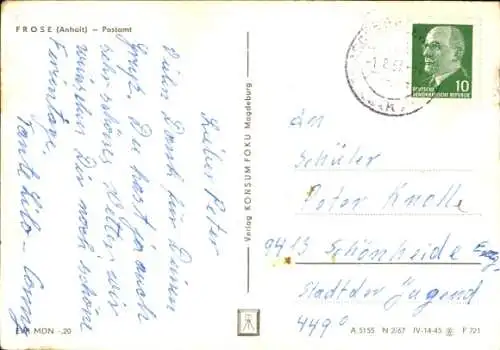 FROSE (Anhalt) – Postamt
Lieber Peter
Vielen Dank für Deinen
Gruß. Du hast ja auch
sehr schönes Wetter, wir
wünschen Dir noch schöne
Ferientage.
Tante Lilo –
EVP MDN -,20
Verlag KONSUM FOKU Magdeburg
10
DEUTSCHE
DEMOKRATISCHE REPUBLIK
an
Schüler
Peter Knolle
9413 Schönheide Erzg
Stadt der Jugend
449
A 5155 N 2/67 IV-14-45 F 721